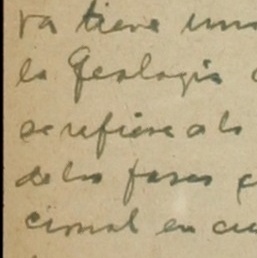 ra tiene una
la Geologia
se refiere a lo
de las fases
cional en cu